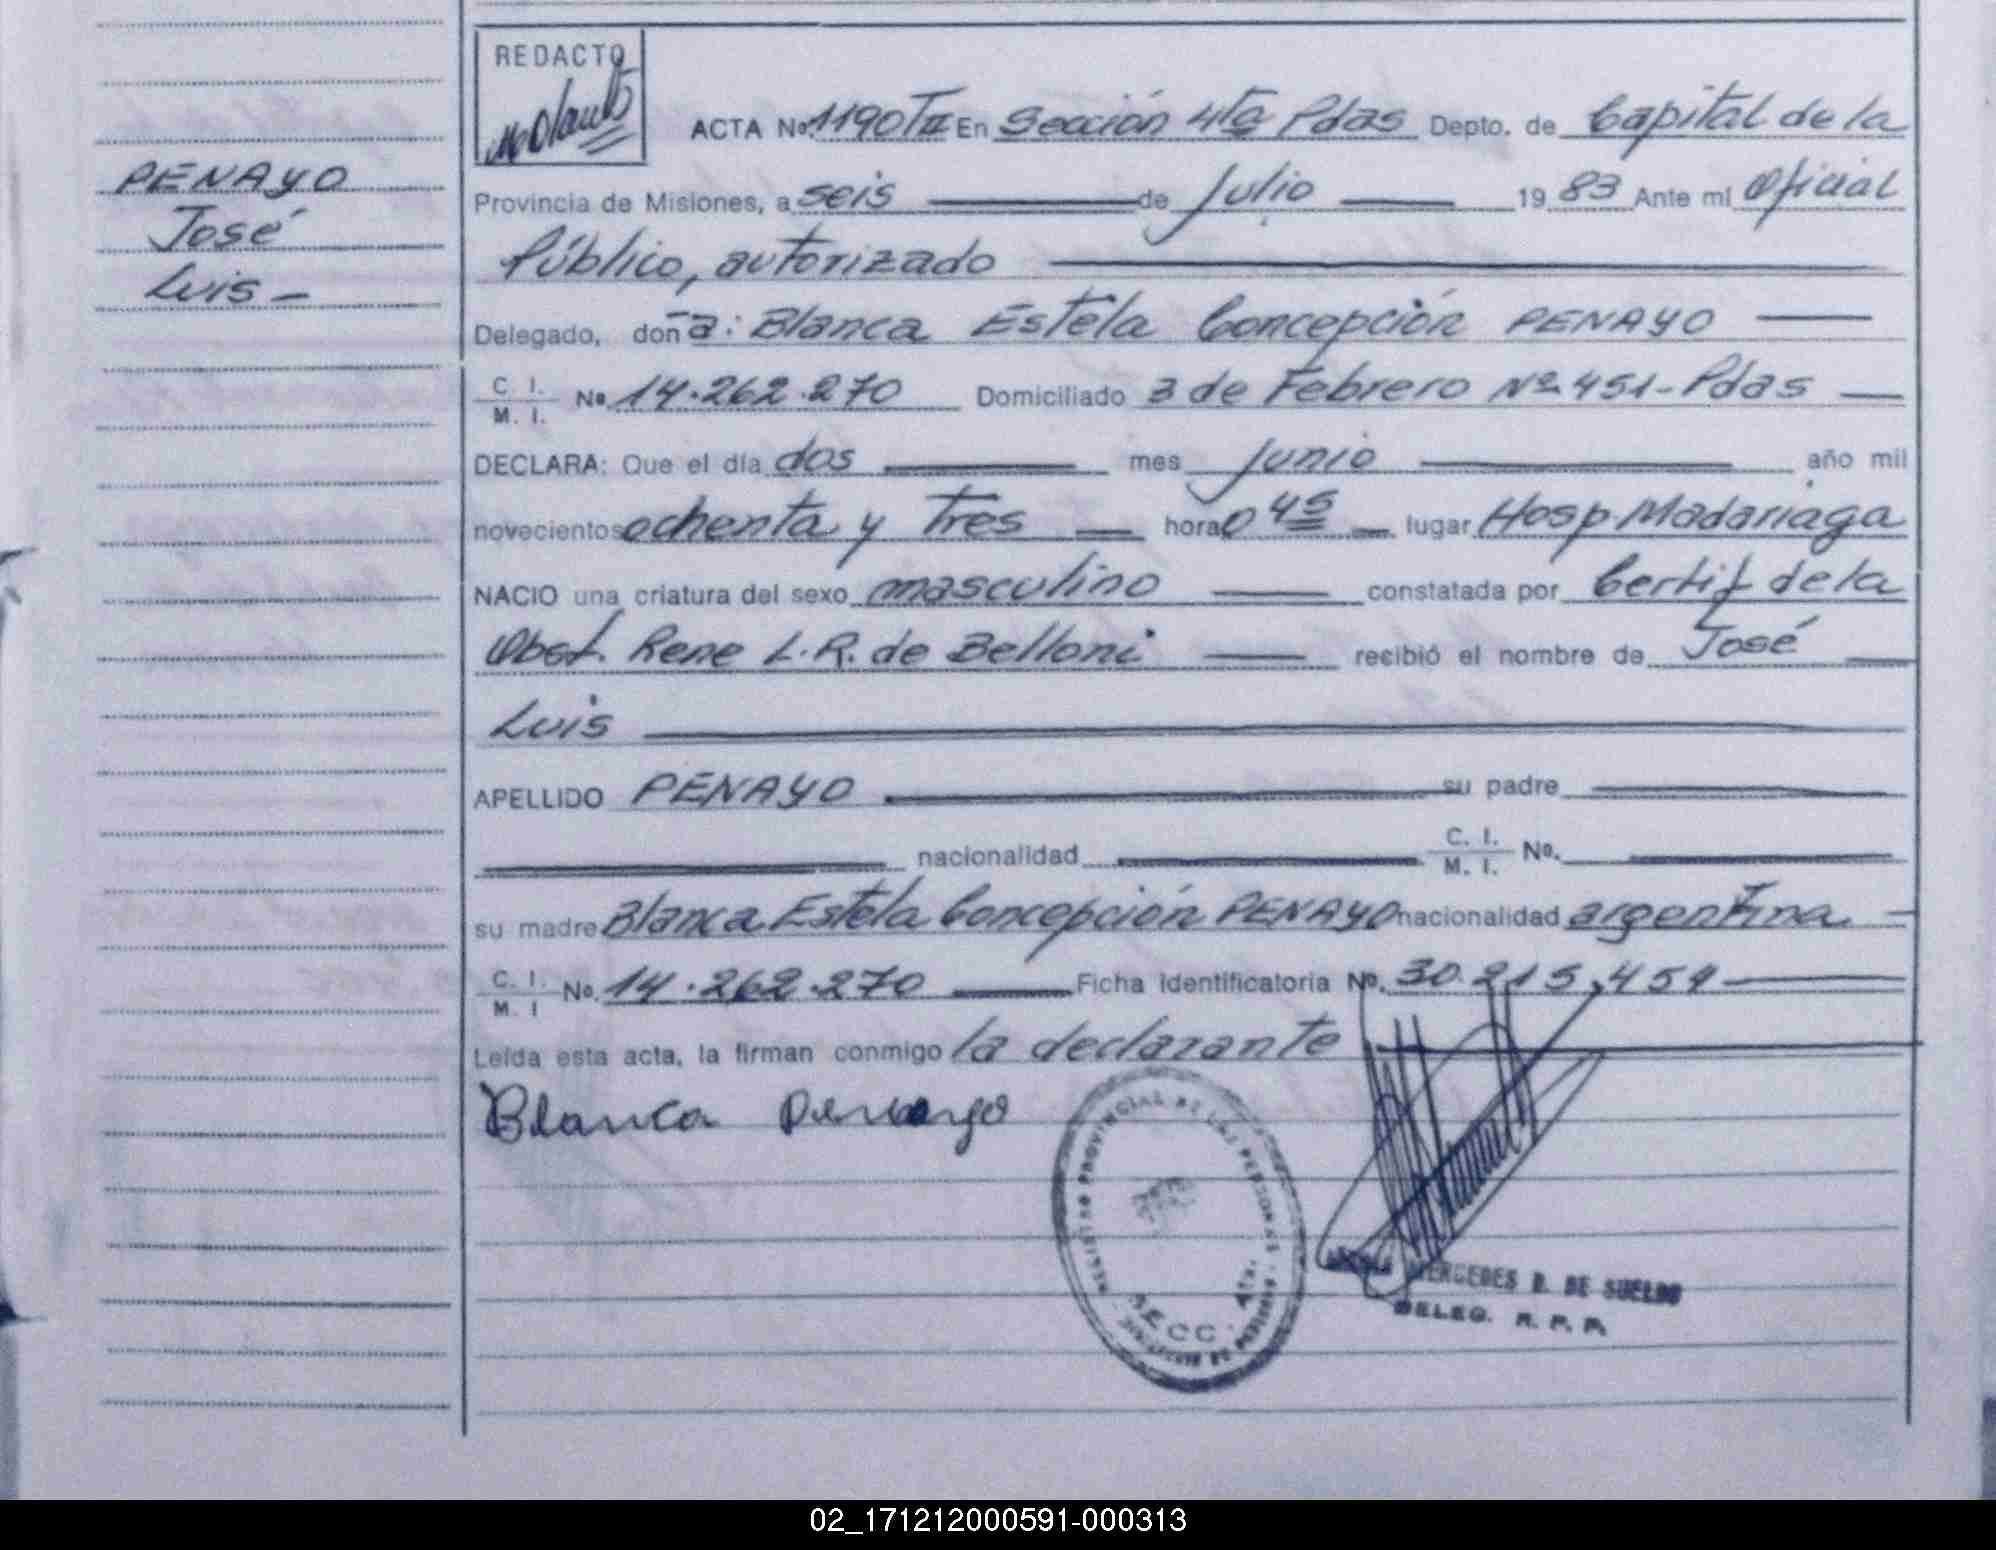 REDACTO
ACTA No 1190 T II En Sección 4ta Pdas Depto. de Capital de la
PENAYO
José
Luis -
Provincia de Misiones, a seis de Julio 19 83 Ante mi Oficial
Público, autorizado
Delegado, don a: Blanca Estela Concepción PENAYO
C. I. M. I. No 14.262.270 Domiciliado 3 de Febrero No 451-Pdas
DECLARA: Que el día dos mes Junio año mil
novecientos ochenta y tres hora 0 45 lugar Hosp. Madariaga
NACIO una criatura del sexo masculino constatada por Certif de la
Obst. Rene L. R. de Belloni recibió el nombre de José
Luis
APELLIDO PENAYO su padre
nacionalidad C. I. M. I. No.
su madre Blanca Estela Concepción PENAYO nacionalidad argentina
C. I. M. I No. 14.262.270 Ficha Identificatoria No. 30.215.459
Leída esta acta, la firman conmigo la declarante
Blanca Penayo
REGISTRO PROVINCIAL DE LAS PERSONAS
SECC. 4ta.
MERCEDES D. DE SUELDO
DELEG. R. P. P.
02_171212000591-000313